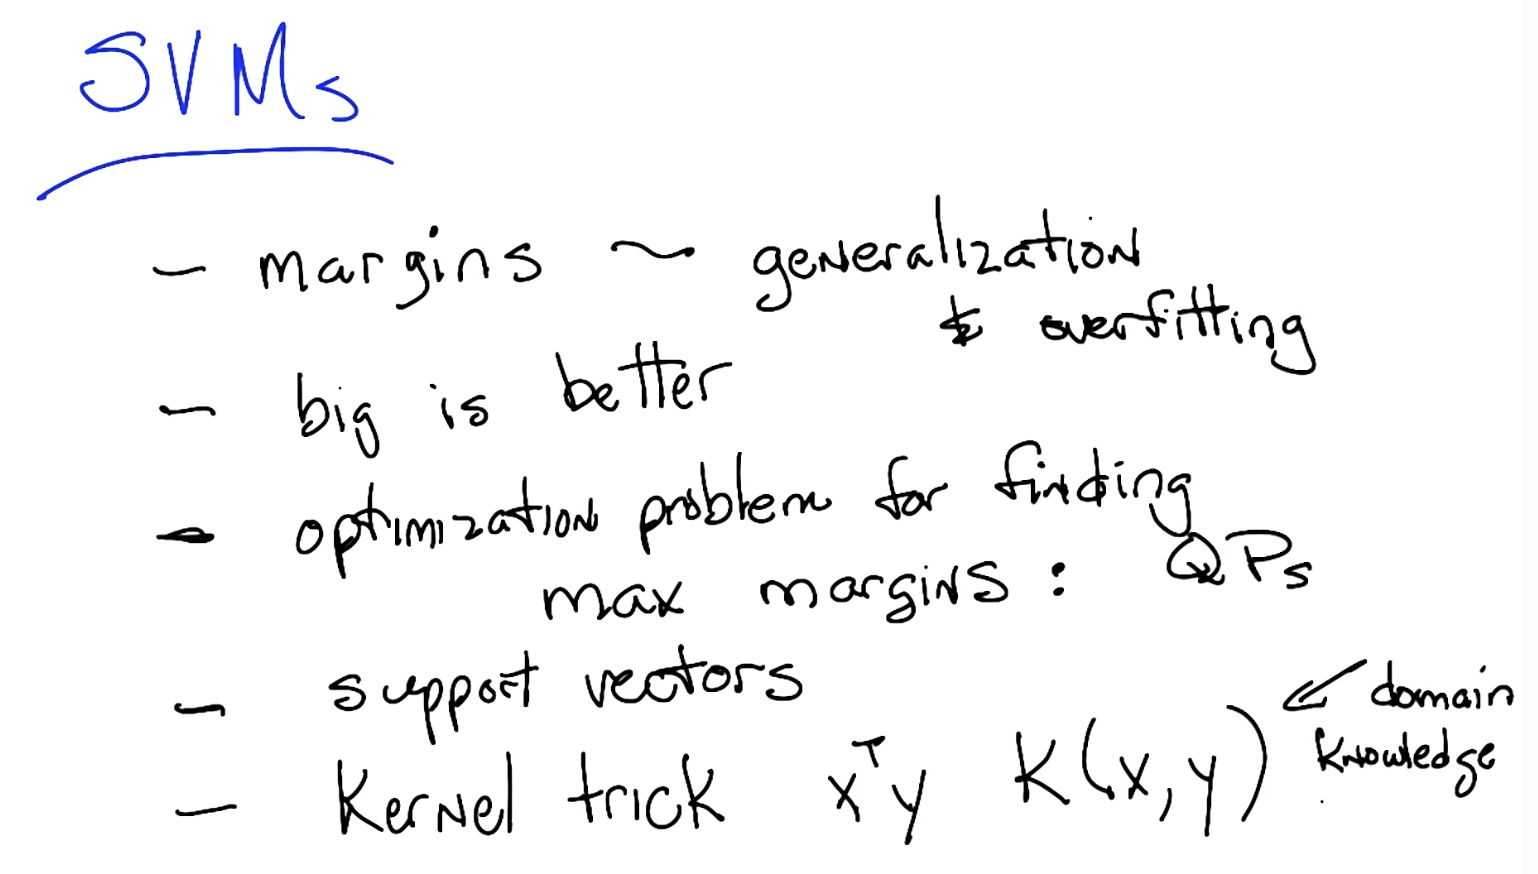 SVMs
- margins ~ generalization
& overfitting
- big is better
- optimization problem for finding
max margins : QPs
- support vectors
- Kernel trick xᵀy K(x,y) ⇐ domain
knowledge